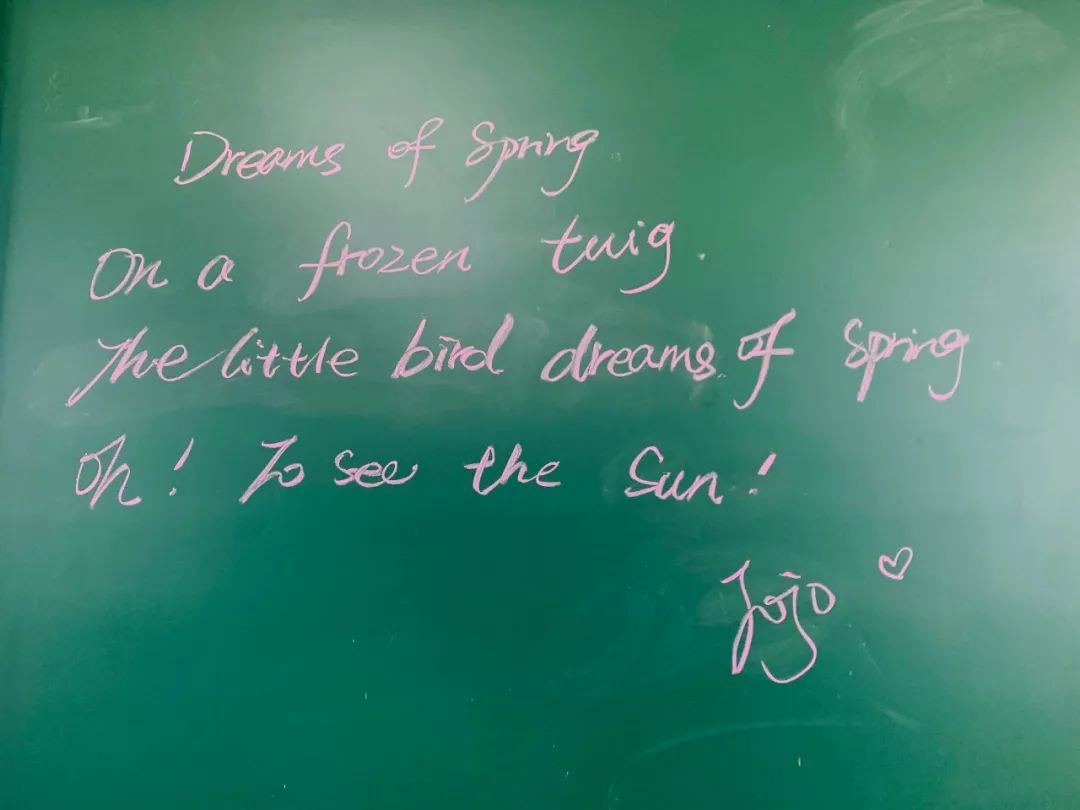 Dreams of Spring
On a frozen twig.
The little bird dreams of Spring
Oh! To see the Sun!
Jojo ♡